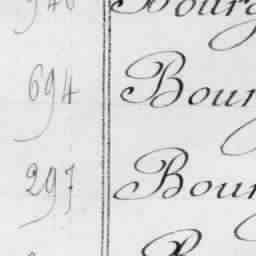 Bourg
694 Bour
297 Bour